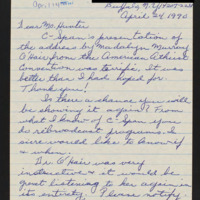 Buffalo, N.Y.
April 24, 1990
Dear Ms. Hunter
C-Span's presentation of
the address by Madalyn Murray
O'Hair from the American Atheist
Convention was terrific. It was
better than I had hoped for.
Thank you!
Is there a chance you will
be showing it again? From
what I know of C-Span you
do rebroadcast programs. I
sure would like to know if
& when.
Dr. O'Hair was very
instructive & it would be
great listening to her again in
its entirety. Please notify